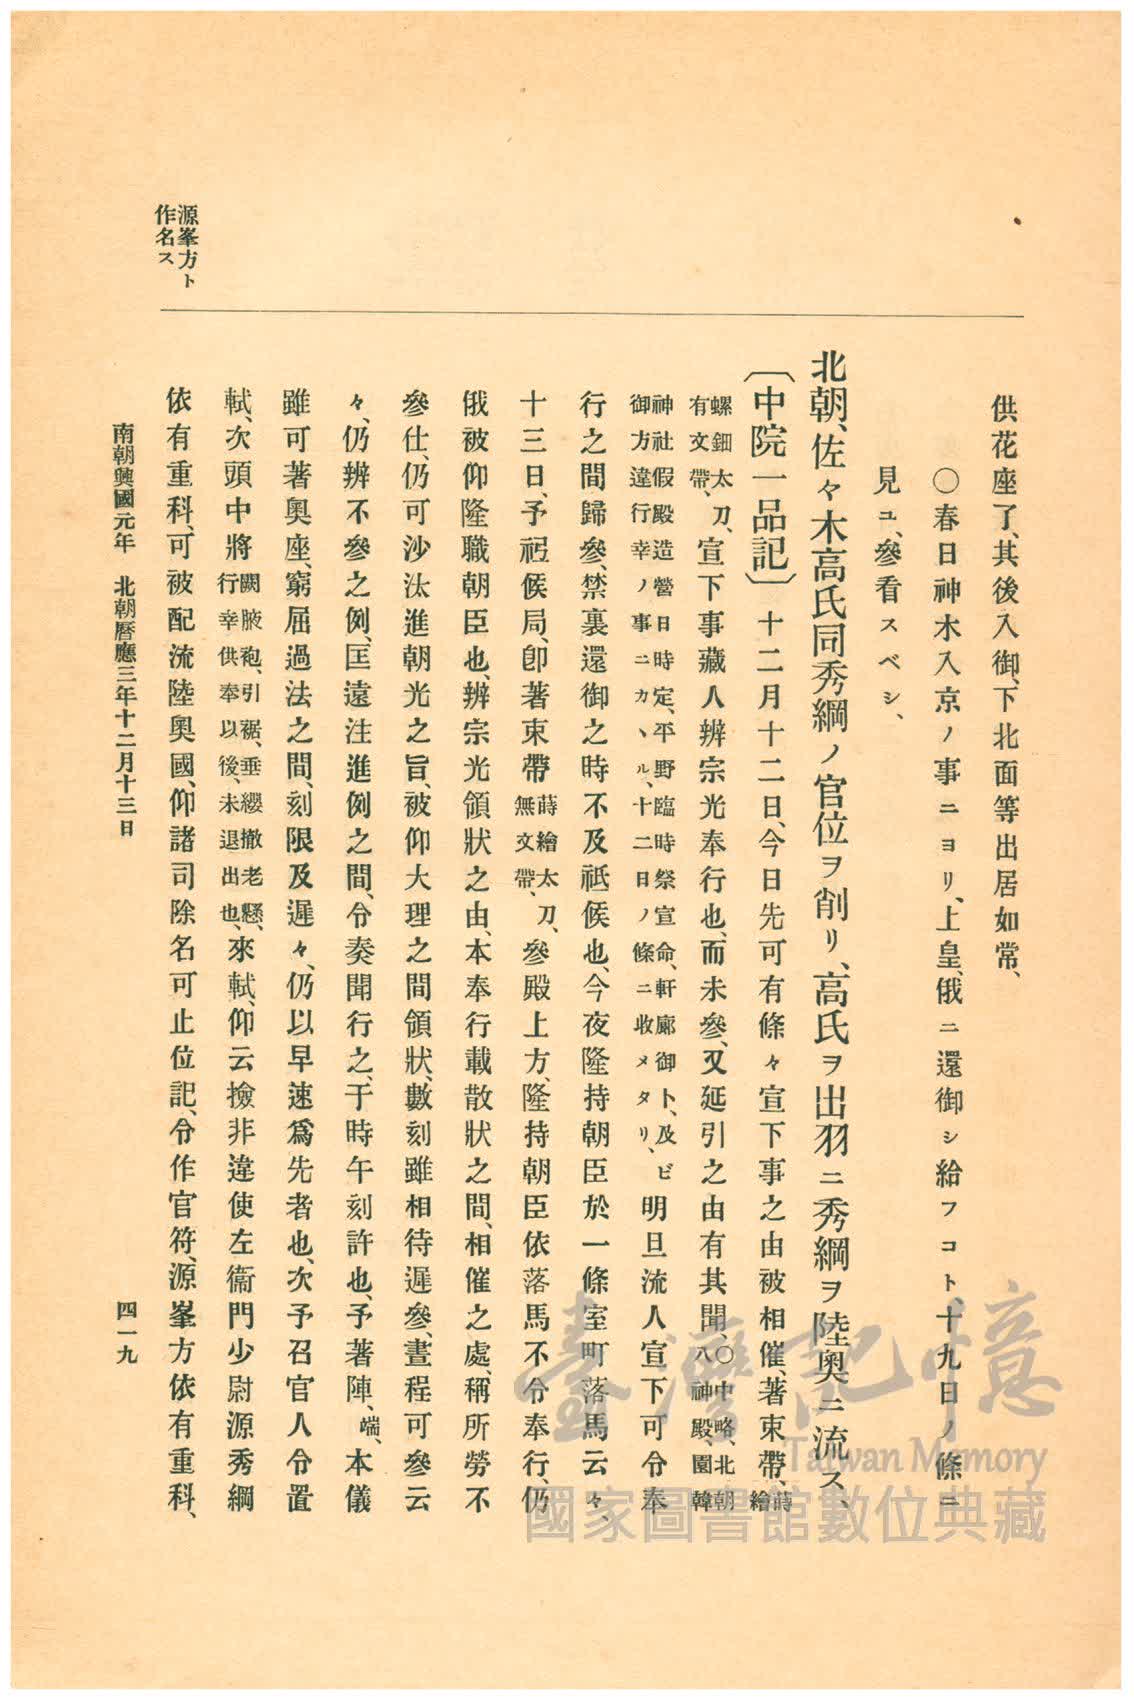 供花座了、其後入御、下北面等出居如常、
〇春日神木入京ノ事ニヨリ、上皇、俄ニ還御シ給フコト、十九日ノ條ニ
見ユ、參看スベシ、
北朝、佐々木高氏同秀綱ノ官位ヲ削リ、高氏ヲ出羽ニ秀綱ヲ陸奧ニ流ス、
〔中院一品記〕十二月十二日、今日先可有條々宣下事之由被相催、著束帶、蒔繪
螺鈿太刀、有文帶、宣下事藏人辨宗光奉行也、而未參、又延引之由有其聞、〇中略、北朝八神殿、園韓
神社假殿造營日時定、平野臨時祭宣命、軒廊御卜、及ビ御方違行幸ノ事ニカヽル、十二日ノ條ニ收メタリ、明旦流人宣下可令奉
行之間歸參、禁裏還御之時不及祗候也、今夜隆持朝臣於一條室町落馬云々、
十三日、予祗候局、卽著束帶蒔繪太刀、無文帶、參殿上方、隆持朝臣依落馬不令奉行、仍
俄被仰隆職朝臣也、辨宗光領狀之由、本奉行載散狀之間、相催之處、稱所勞不
參仕、仍可沙汰進朝光之旨、被仰大理之間領狀、數刻雖相待遲參、晝程可參云
々、仍辨不參之例、匡遠注進例之間、令奏聞行之、于時午刻許也、予著陣、端、本儀
雖可著奧座、窮屈過法之間、刻限及遲々、仍以早速爲先者也、次予召官人令置
軾、次頭中將闕腋袍、引裾、垂纓撤老懸、行幸供奉以後、未退出也、來軾、仰云撿非違使左衞門少尉源秀綱
依有重科、可被配流陸奧國、仰諸司除名可止位記、令作官符、源峯方依有重科、
源峯方ト
作名ス
南朝興國元年 北朝曆應三年十二月十三日
四一九
臺灣記憶
Taiwan Memory
國家圖書館數位典藏